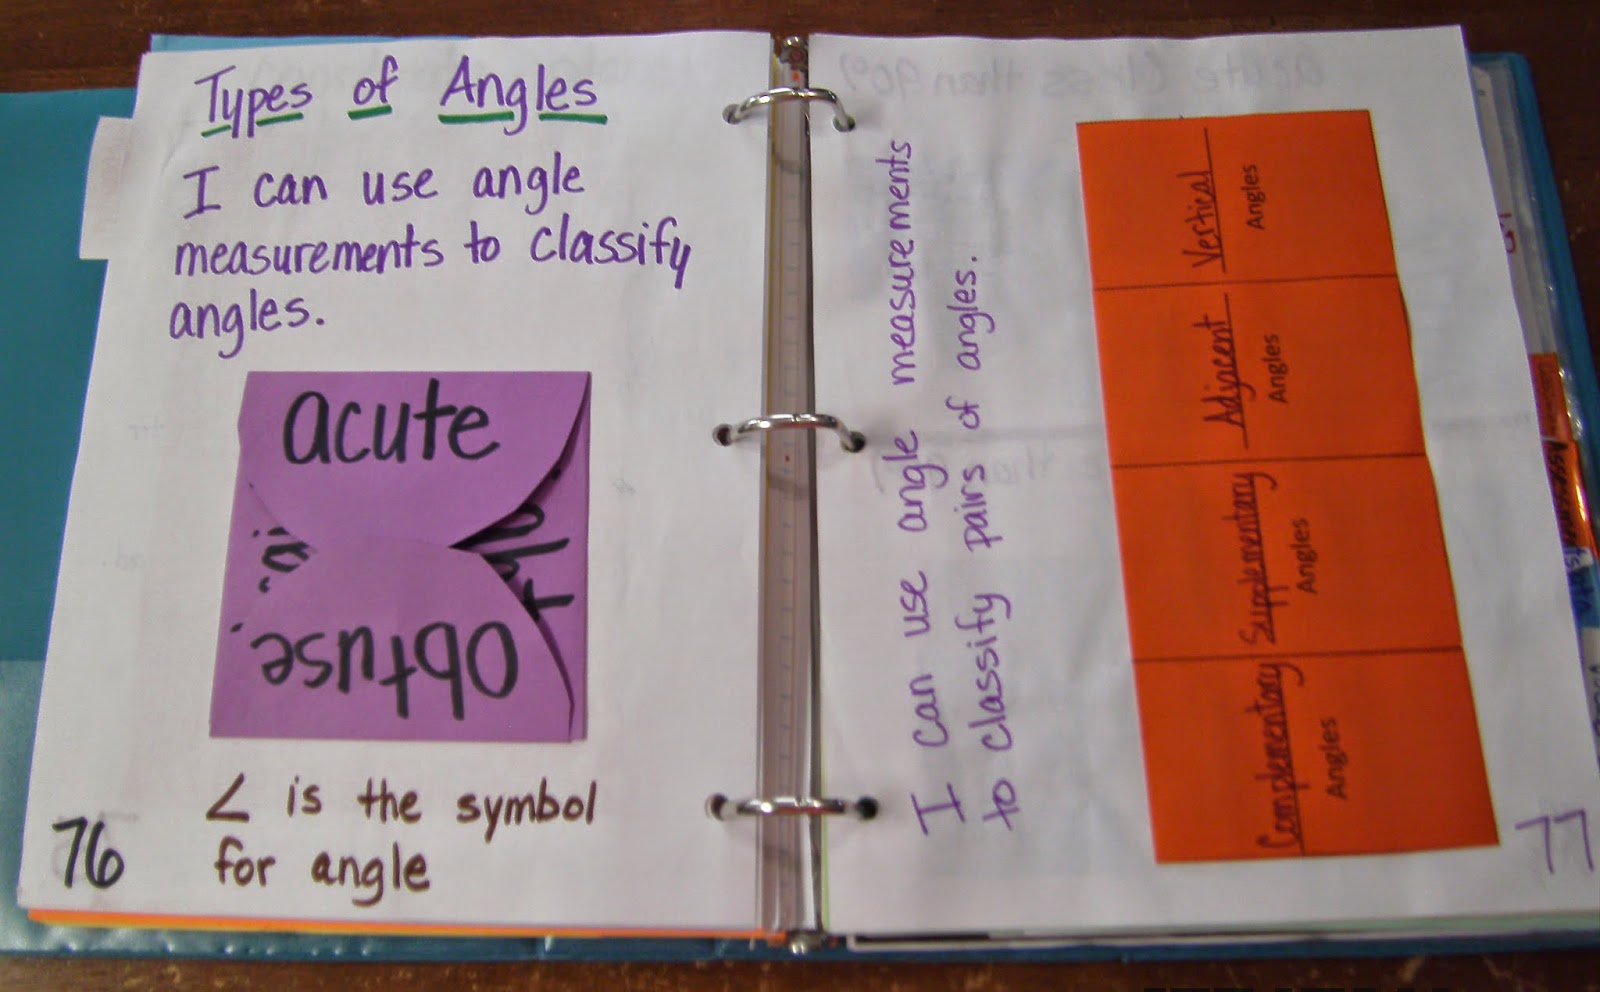 Types of Angles
I can use angle
measurements to classify
angles.
acute
obtuse
∠ is the symbol
for angle
76
I can use angle measurements
to classify pairs of angles.
Complementary
Angles
Supplementary
Angles
Adjacent
Angles
Vertical
Angles
77
acute (less than 90°)